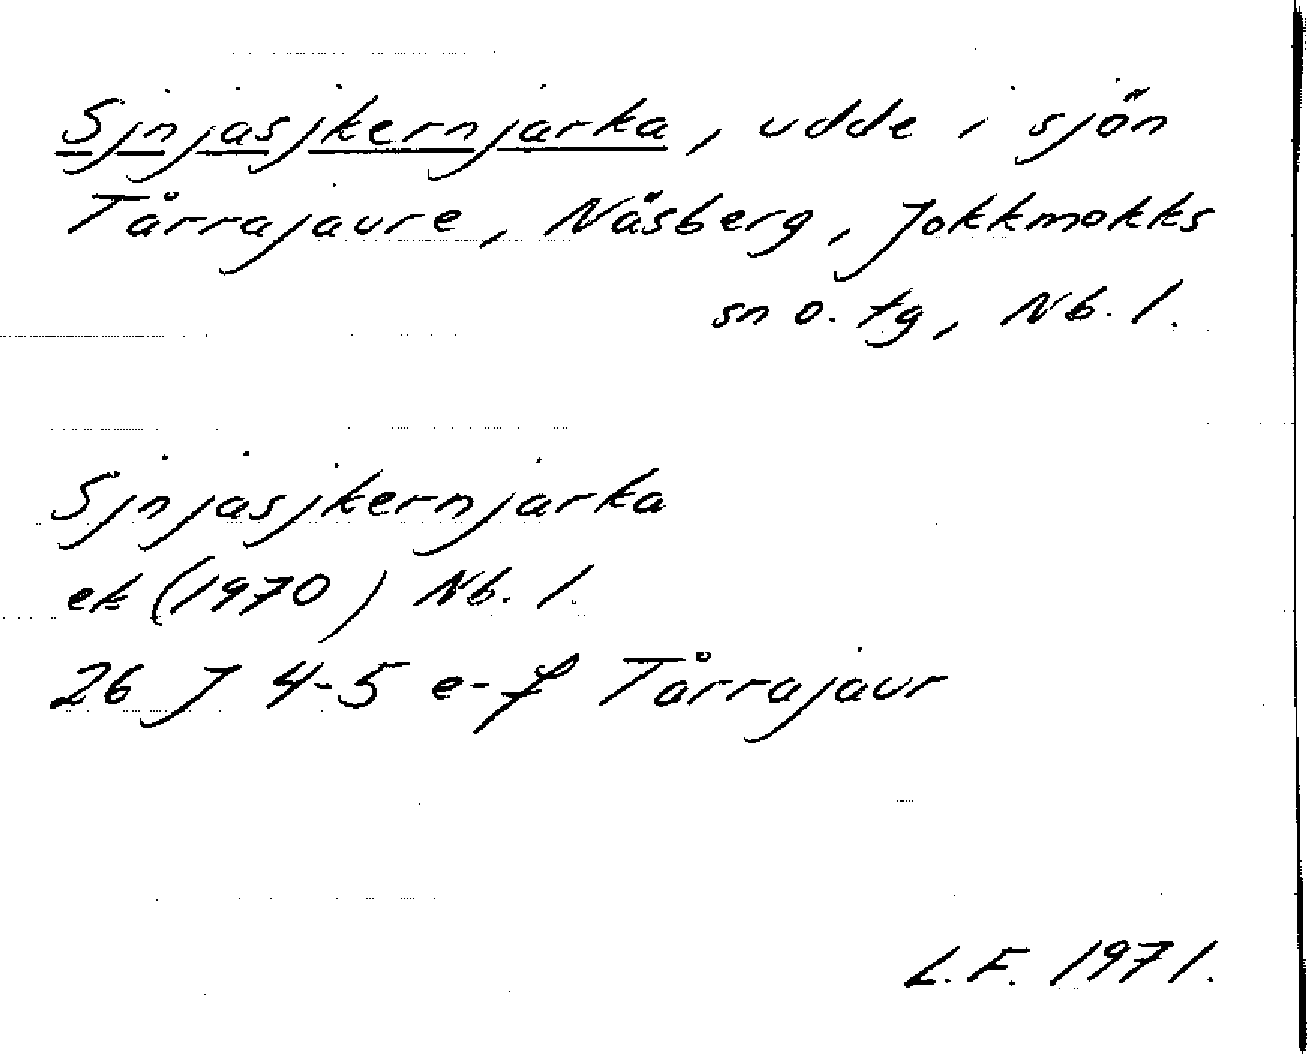 Sjnjasjkernjarka, udde i sjön
Tårrajaure, Näsberg, Jokkmokks
sn o. tg, Nb. l.
Sjnjasjkernjarka
ek (1970) Nb. l.
26 J 4-5 e-f Tårrajaur
L.F. 1971.